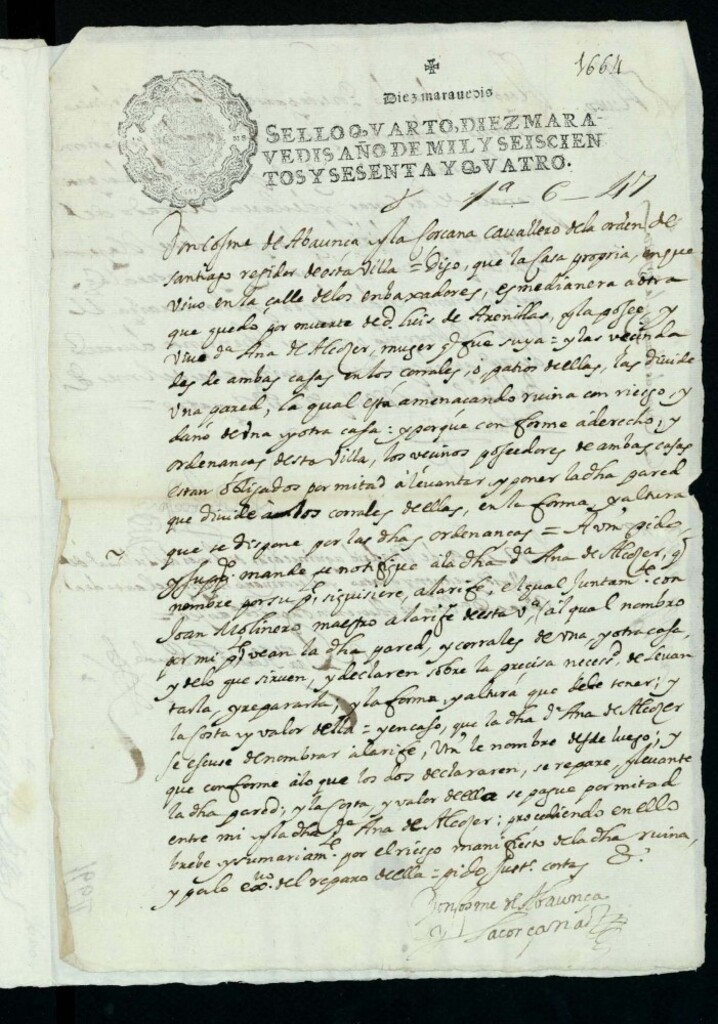 1664
Diez marauedis
SELLO QVARTO, DIEZ MARA-
VEDIS AÑO DE MIL Y SEISCIEN
TOS Y SESENTA Y QVATRO.
1ª 6 - 47
Don Cosme de Abaunca y la Corcana Cavallero de la orden de
santiago regidor de esta Villa = Digo, que la Casa propria, en que
vivo en la calle de los enbaxadores, es medianera a otra
que quedó por muerte de d. Luis de Arenillas, y la posee, y
vive dª Ana de Alcozer, muger q fue suya = y las vecinda
des de ambas casas en los corrales, o patios de ellas, las divide
una pared, la qual está amenacando ruina con riesgo, y
daño de una y otra casa = y porque con forme a derecho, y
ordenancas de sta Villa, los vecinos poseedores de ambas casas
estan obligados por mitad a levantar, y poner la dha pared
que divide a los corrales de ellas, en la forma, y altura
que se dispone por las dhas ordenancas = A Vm pido,
y suppco mande se notifique a la dha dª Ana de Alcozer, q
nombre por su pte, si quisiere, alarife, el qual juntamte con
Joan Molinero maestro alarife de esta vª, (al qual nombro
por mi pte) vean la dha pared, y corrales de una, y otra casa,
y de lo que sirven, y declaren sobre la precisa necesd de levan
tarla, y repararla, y la forma, y altura que debe tener; y
la costa y valor della = y en caso, que la dha dª Ana de Alcozer
se escuse de nombrar alarife, Vm le nombre desde luego; y
que conforme a lo que los dos declararen, se repare, y levante
la dha pared; y la costa, y valor de ella se pague por mitad
entre mi y la dha dª Ana de Alcozer; procediendo en ello
brebe y sumariamte por el riesgo manifiesto de la dha ruina,
y pa lo exvo del reparo de ella = pido Justª costas &ª
Don Cosme de Abaunca
y Lacorçana